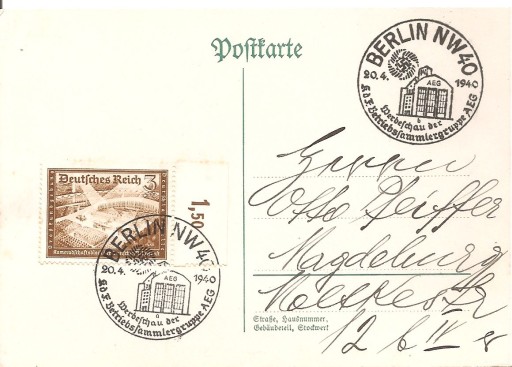 Postkarte
BERLIN NW 40
AEG
20.4. 1940
b
Werbeschau der
KdF. Betriebssammlergruppe AEG
Deutsches Reich 3
1,50
BERLIN NW 40
AEG
20.4. 1940
a
Werbeschau der
KdF. Betriebssammlergruppe AEG
Herrn
Otto Pfeiffer
Magdeburg
Moltkestr
12 b IV r
Straße, Hausnummer,
Gebäudeteil, Stockwerk